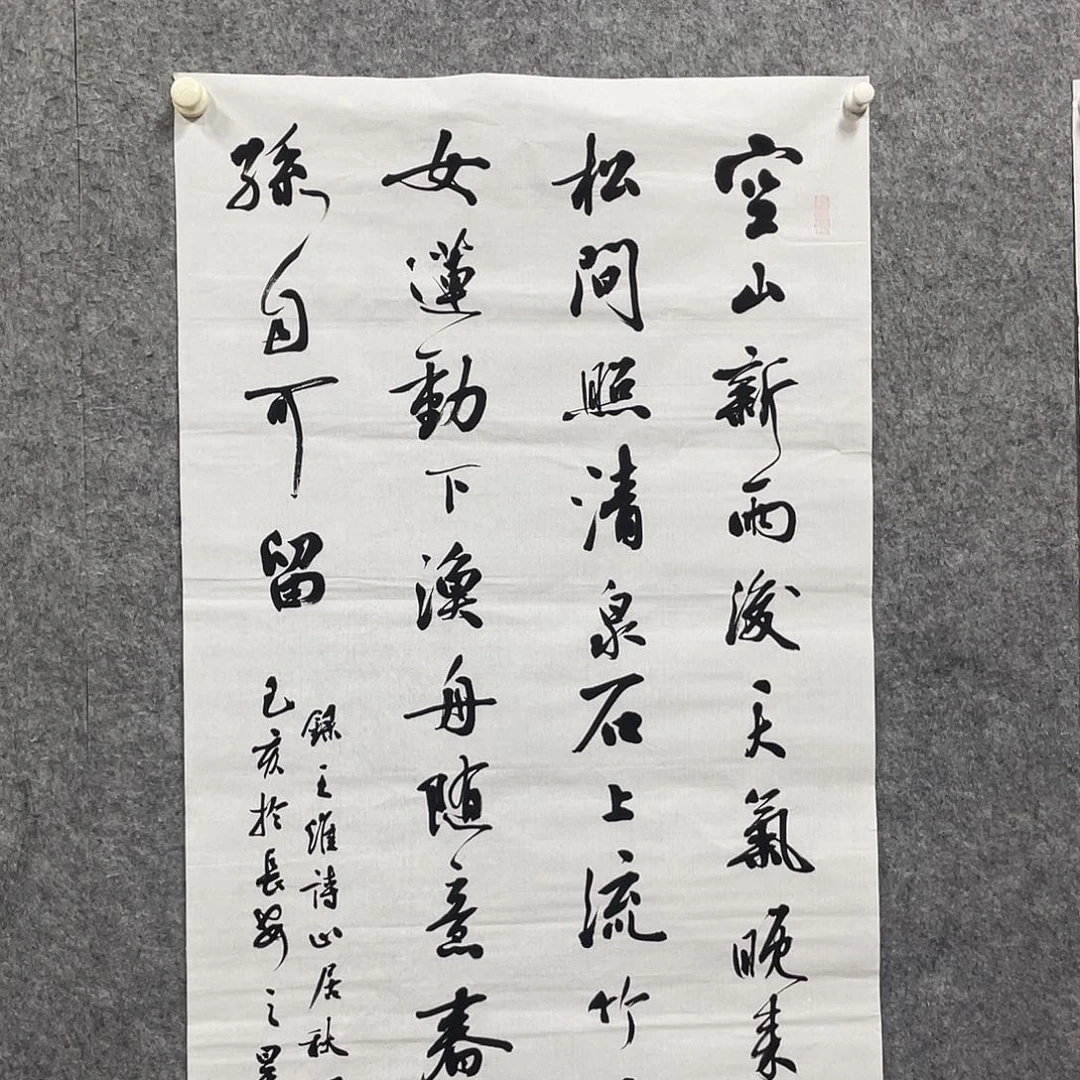 空山新雨後天氣晚来
松間照清泉石上流竹
女蓮動下漁舟随意春
孫自可留
録王維詩山居秋
己亥於長安之